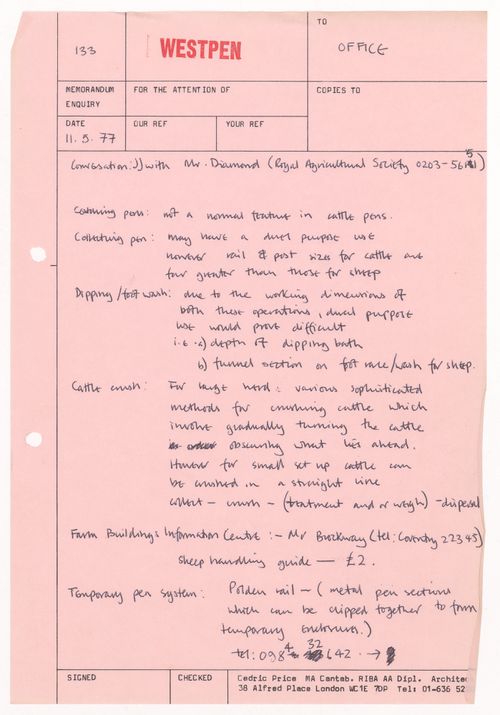 133
WESTPEN
TO
OFFICE
MEMORANDUM
ENQUIRY
FOR THE ATTENTION OF
COPIES TO
DATE
11.5.77
OUR REF
YOUR REF
Conversation: JJ with Mr. Diamond (Royal Agricultural Society 0203-56
Catching pens: not a normal feature in cattle pens.
Collecting pen: may have a dual purpose use
however rail & post sizes for cattle are
far greater than those for sheep
Dipping/foot wash: due to the working dimensions of
both these operations, dual purpose
use would prove difficult
i.e. a) depth of dipping bath
b) funnel section on foot race/wash for sheep.
Cattle crush: For large herd: various sophisticated
methods for crushing cattle which
involve gradually turning the cattle
obscuring what lies ahead.
However for small set up cattle can
be crushed in a straight line
collect - crush - (treatment and or weigh) - dispersal
Farm Buildings Information Centre: - Mr Brockway (tel: Coventry 22345)
sheep handling guide - £2.
Temporary pen system: Polden rail - (metal pen sections
which can be clipped together to form
temporary enclosures.)
tel: 0984 32 642 →
SIGNED
CHECKED
Cedric Price MA Cantab. RIBA AA Dipl. Architec
38 Alfred Place London WC1E 7DP Tel: 01-636 52